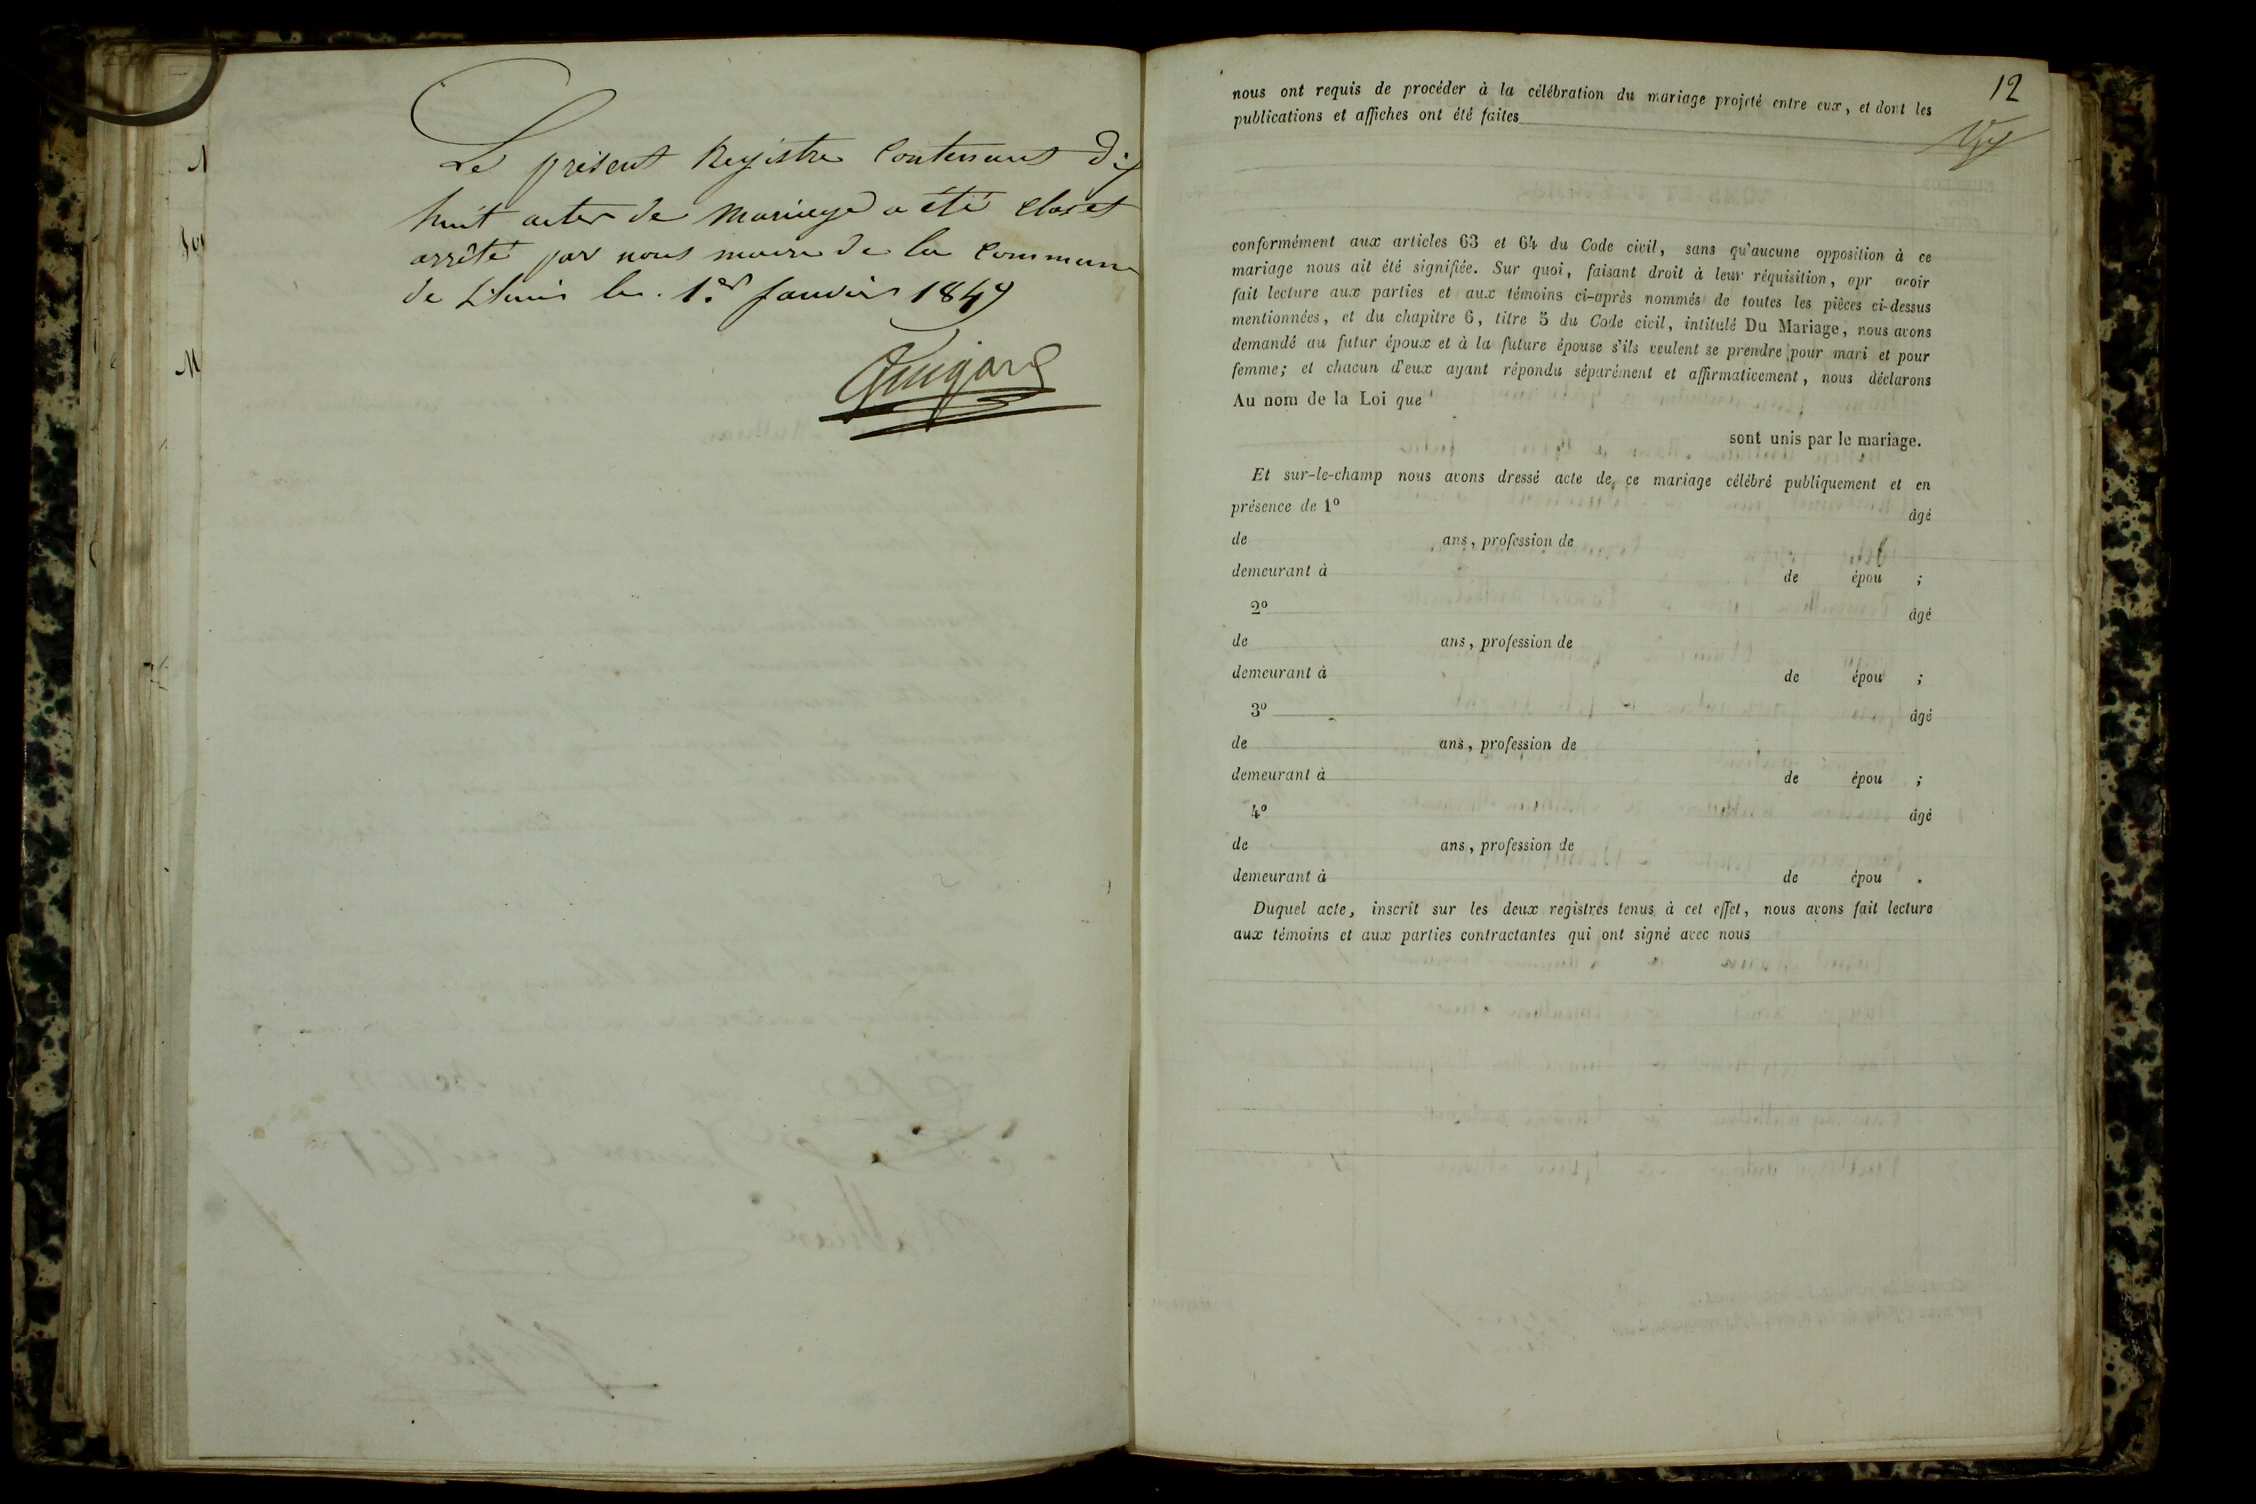 Le présent Registre Contenant dix
huit actes de Mariage a été clos et
arrêté par nous maire de la Commune
de le 1er Janvier 1849
Guigard
12
nous ont requis de procéder à la célébration du mariage projeté entre eux, et dont les
publications et affiches ont été faites
conformément aux articles 63 et 64 du Code civil, sans qu'aucune opposition à ce
mariage nous ait été signifiée. Sur quoi, faisant droit à leur réquisition, apr avoir
fait lecture aux parties et aux témoins ci-après nommés de toutes les pièces ci-dessus
mentionnées, et du chapitre 6, titre 5 du Code civil, intitulé Du Mariage, nous avons
demandé au futur époux et à la future épouse s'ils veulent se prendre pour mari et pour
femme; et chacun d'eux ayant répondu séparément et affirmativement, nous déclarons
Au nom de la Loi que
sont unis par le mariage.
Et sur-le-champ nous avons dressé acte de ce mariage célébré publiquement et en
présence de 1º âgé
de ans, profession de
demeurant à de épou ;
2º âgé
de ans, profession de
demeurant à de épou ;
3º âgé
de ans, profession de
demeurant à de épou ;
4º âgé
de ans, profession de
demeurant à de épou .
Duquel acte, inscrit sur les deux registres tenus à cet effet, nous avons fait lecture
aux témoins et aux parties contractantes qui ont signé avec nous